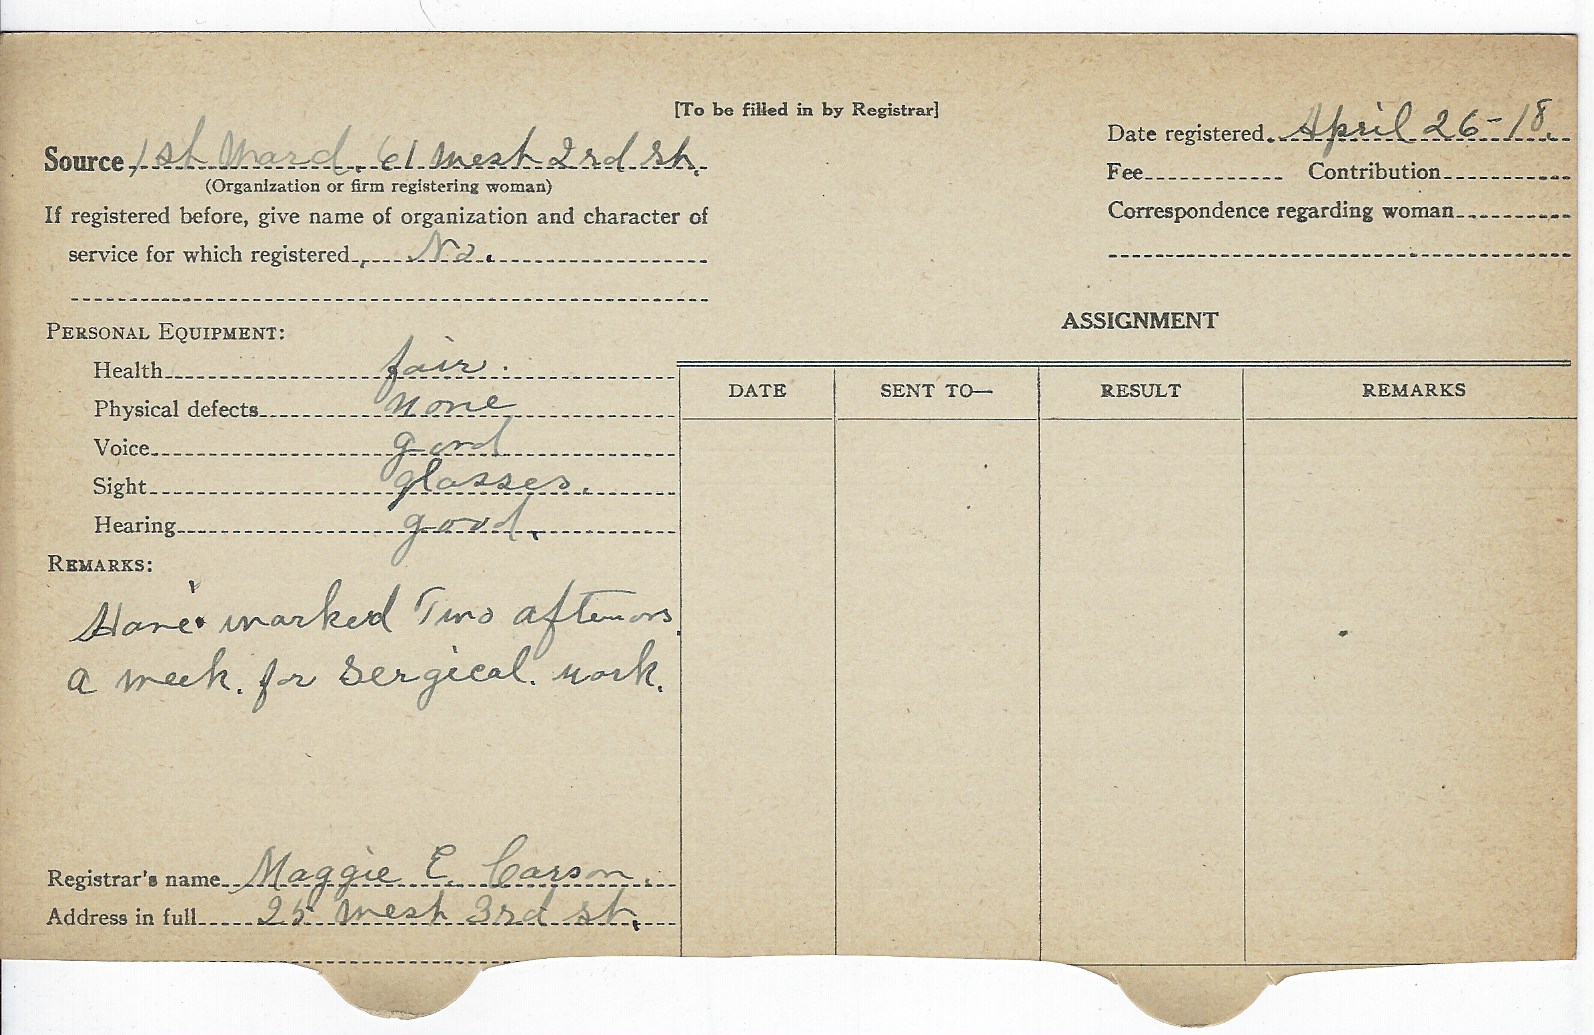 [To be filled in by Registrar]
Date registered April 26-18.
Source 1st Ward. 61 West 2rd St.
(Organization or firm registering woman)
Fee Contribution
If registered before, give name of organization and character of
Correspondence regarding woman
service for which registered No.
PERSONAL EQUIPMENT:
ASSIGNMENT
Health fair.
DATE SENT TO— RESULT REMARKS
Physical defects none
Voice good
Sight glasses.
Hearing good.
REMARKS:
Have worked Two afternors
a week. for Sergical. work.
Registrar's name Maggie E. Carson.
Address in full 25 West 3rd St.